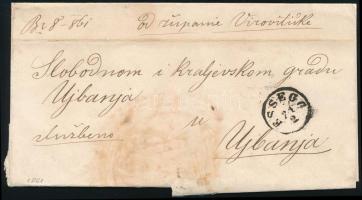 Br 8-861 Od županie Virovitičke
Slobodnom i kraljevskom gradu
Ujbanja
službeno u Ujbanja
ESSEGG